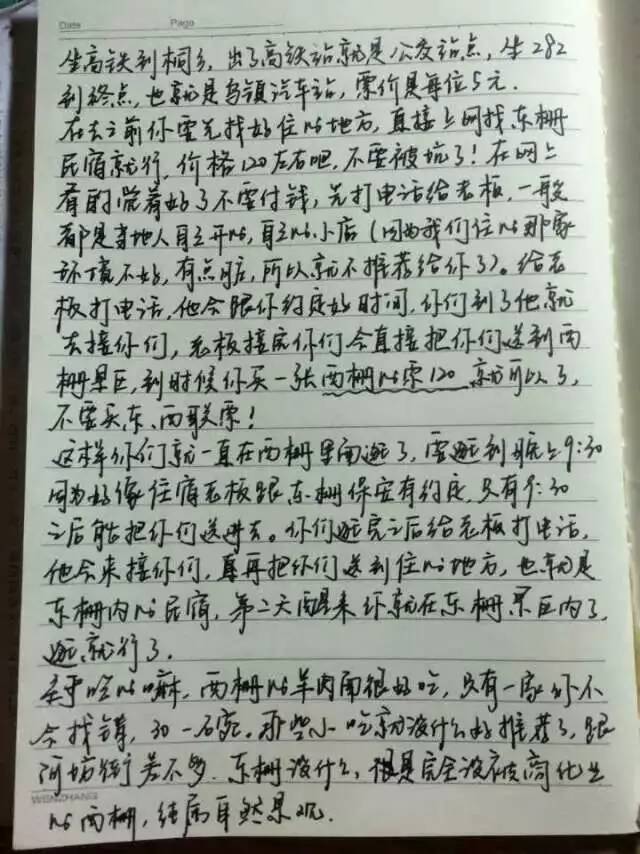 Date Page
坐高铁到桐乡，出了高铁站就是公交站点，坐282
到终点，也就是乌镇汽车站，票价是每位5元．
在去之前你要先找好住的地方，直接上网找东栅
民宿就行，价格120左右吧，不要被坑了！在网上
看的觉着好了不要付钱，先打电话给老板，一般
都是当地人自己开的，自己的小店（因为我们住的那家
环境不好，有点脏，所以就不推荐给你了）。给老
板打电话，他会跟你约定好时间，你们到了他就
去接你们，老板接完你们会直接把你们送到西
栅景区，到时候你买一张西栅的票120 就可以了，
不要买东、西联票！
这样你们就一直在西栅里面逛了，要逛到晚上9:30
因为好像住宿老板跟东栅保安有约定，只有9:30
之后能把你们送进去。你们逛完之后给老板打电话，
他会来接你们，再把你们送到住的地方，也就是
东栅内的民宿，第二天醒来你就在东栅景区内了，
逛就行了．
至于吃的嘛，西栅的羊肉面很好吃，只有一家你不
会找错，30一石宛。那些小吃就没什么好推荐了，跟
阿坊街差不多．东栅没什么，很是完全没被商化
WENZHANG
的西栅，结属自然景观．